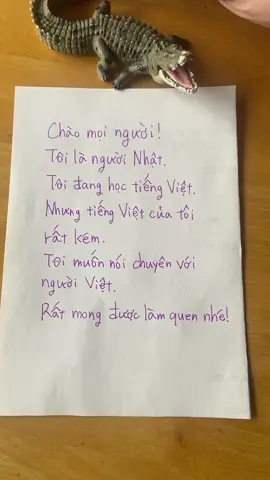 Chào mọi người!
Tôi là người Nhật.
Tôi đang học tiếng Việt.
Nhưng tiếng Việt của tôi
rất kém.
Tôi muốn nói chuyên với
người Việt.
Rất mong được làm quen nhé!